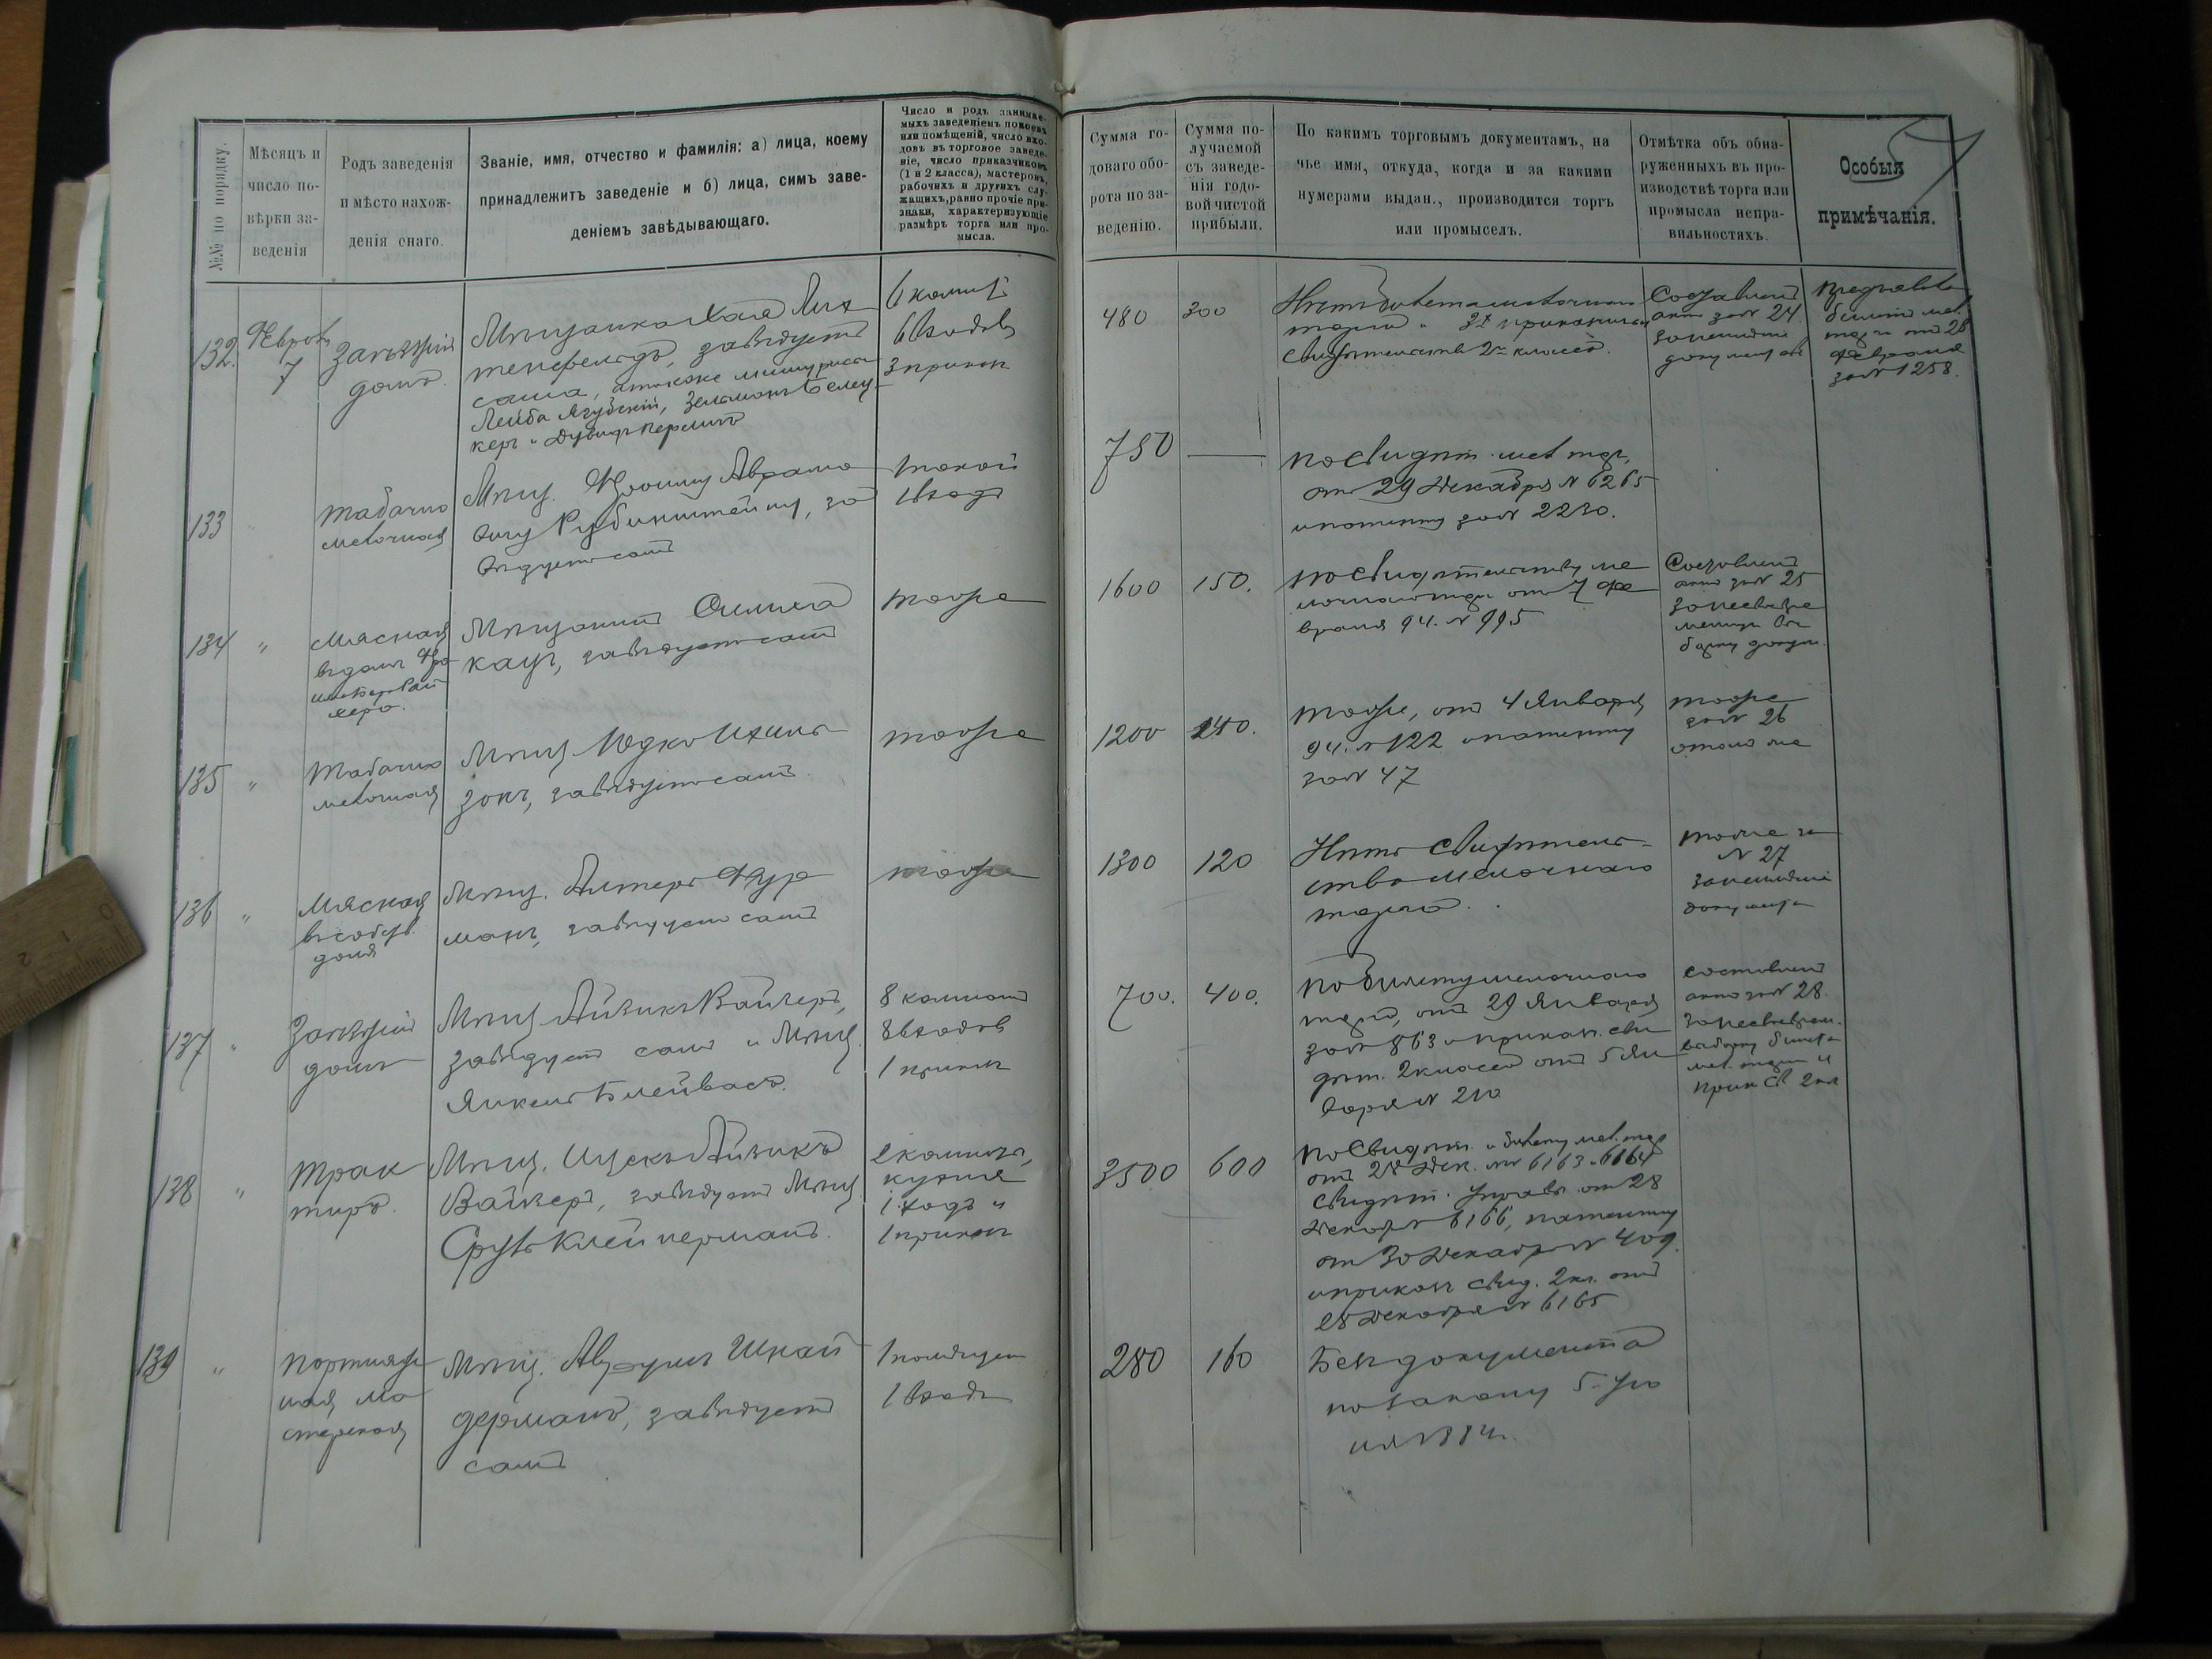 №№ по порядку.
Мѣсяцъ и
число по-
вѣрки за-
веденія
Родъ заведенія
и мѣсто нахож-
денія онаго.
Званіе, имя, отчество и фамилія: а) лица, коему
принадлежитъ заведеніе и б) лица, симъ заве-
деніемъ завѣдывающаго.
Число и родъ занимае-
мыхъ заведеніемъ покоевъ
или помѣщеній, число вхо-
довъ въ торговое заведе-
ніе, число приказчиковъ
(1 и 2 класса), мастеровъ,
рабочихъ и другихъ слу-
жащихъ, равно прочіе при-
знаки, характеризующіе
размѣръ торга или про-
мысла.
Сумма го-
доваго обо-
рота по за-
веденію.
Сумма по-
лучаемой
съ заведе-
нія годо-
вой чистой
прибыли.
По какимъ торговымъ документамъ, на
чье имя, откуда, когда и за какими
нумерами выдан., производится торгъ
или промыселъ.
Отмѣтка объ обна-
руженныхъ въ про-
изводствѣ торга или
промысла непра-
вильностяхъ.
Особыя
примѣчанія.
132.
7
Заѣзжій
домъ.
Мѣщанка Хая Лих
тенфельдъ, завѣдуетъ
сама, а также
Лейба Ягудскій, Зельманъ Белец
керъ и
6 комнат
6 входовъ
3 приказ
480
300
Нѣтъ билета мелочнаго
торга и 3х приказчич
свидѣтельствъ 2го класса.
Составленъ
актъ за № 24
за неимѣніе
документовъ
билетъ мел.
торга от 28
Февраля
за № 1258.
133
"
Табачно
мелочная
Мѣщ. Абрамо
вичу Рубинштейну, за
вѣдуетъ самъ
1 покой
1 входъ
750
—
По свидѣт. мел. торг.
от 29 Декабря № 6265
и патенту за № 2230.
134
"
Мясная
въ домѣ
Мѣщанинъ
кацъ, завѣдуетъ самъ
тоже
1600
150.
По свидѣтельству ме
лочнаго торга от 7 Фе
враля 94. № 995
Составленъ
актъ за № 25
за несвоевре
менную вы
борку докум.
135
"
Табачно
мелочная
Мѣщ. Юдко Ицинъ
зонъ, завѣдуетъ самъ
тоже
1200
140.
Тоже, отъ 4 Января
94. № 122 и патенту
за № 47
тоже
за № 26
136
"
Мясная
въ собств.
домѣ
Мѣщ. Алтеръ Фур
манъ, завѣдуетъ самъ
тоже
1300
120
Нѣтъ свидѣтель-
ства мелочнаго
торга.
тоже за
№ 27
за неимѣніе
документа
137
"
Заѣзжій
домъ
Мѣщ. Айзикъ Вайнеръ,
завѣдуетъ самъ и Мѣщ.
Янкель Блейвасъ.
8 комнатъ
8 входовъ
1 приказ
700.
400.
По билету мелочнаго
торга, отъ 29 Января
за № 863 и приказ. сви
дѣт. 2 класса отъ 5 Ян
варя № 210
Составленъ
актъ за № 28.
за несвоеврем.
выборку билета
мел. торга и
прик св. 2 кл
138
"
Трак
тиръ.
Мѣщ. Ицекъ Айзикъ
Вайнеръ, завѣдуетъ Мѣщ
Сруль Клейнерманъ.
2 комнаты,
кухня
1 входъ и
1 приказ
3500
600
По свидѣт. и билету мел. тор
отъ 28 Дек. №№ 6163 и 6164
свидѣт. Управы от 28
Декаб № 6166, патенту
от 30 Декабря № 409.
и приказ свид. 2 кл. отъ
28 Декабря № 6165
139
"
Портняж
ная ма
стерская
Мѣщ. Аврумъ Шнай
дерманъ, завѣдуетъ
самъ
1 помѣщен
1 входъ
280
160
Безъ документа
по закону 5 Ию
ня 1884 г.